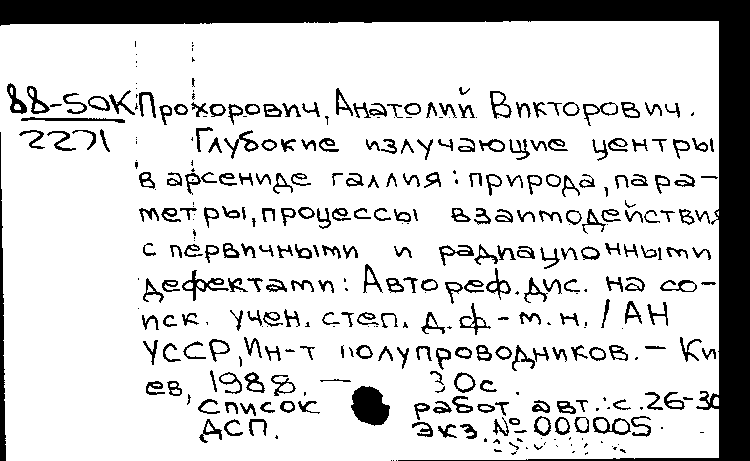 88-50К Прохорович, Анатолий Викторович.
2271 Глубокие излучающие центры
в арсениде галлия: природа, пара-
метры, процессы взаимодействия
с первичными и радиационными
дефектами: Автореф. дис. на со-
иск. учен. степ. д. ф-м.н. / АН
УССР, Ин-т полупроводников. - Ки
ев, 1988. - 30с.
Список работ авт.: с. 26-30
ДСП. Экз. № 000005